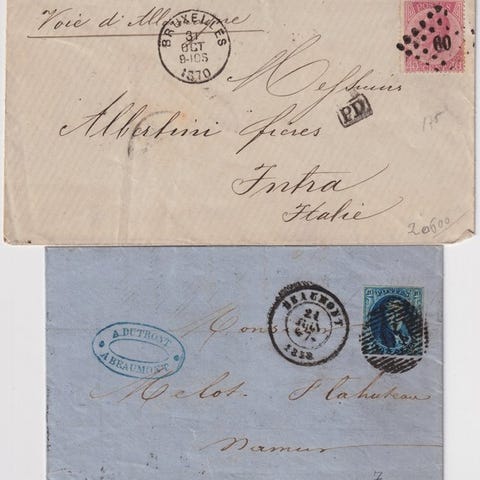 Voie d'Allemagne
BRUXELLES
31
OCT
9-10S
1870
60
Messieurs
Albertini frères
PD
Intra
Italie
175
20600
BEAUMONT
21
1858
POSTES
A. DUTRONT
A BEAUMONT
Monsieur
Melot
Namur
7